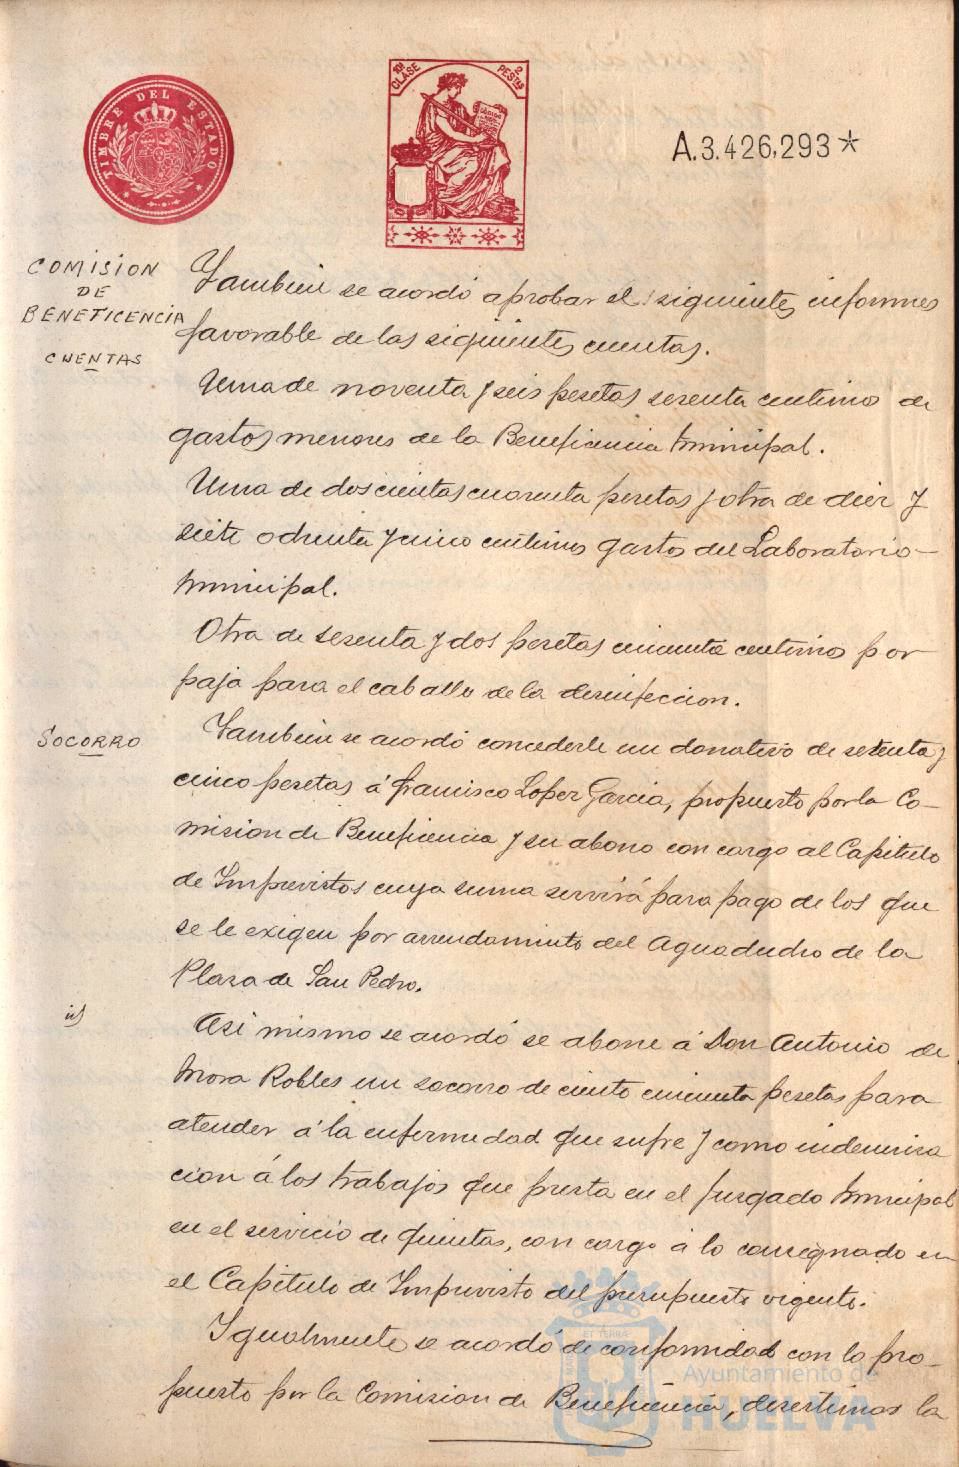 TIMBRE DEL ESTADO
10ª CLASE
2 PESTAS
A.3.426,293*
COMISION
DE
BENEFICENCIA
CUENTAS
Tambien se acordó aprobar el siguientes informes
favorable de las siguientes cuentas.
Una de noventa y seis pesetas sesenta centimos de
gastos menores de la Beneficencia Municipal.
Una de doscientas cuarenta pesetas y otra de diez y
siete ochenta y cinco centimos gastos del Laboratorio
Municipal.
Otra de sesenta y dos pesetas cincuenta centimos por
paja para el caballo de la desinfeccion.
SOCORRO
Tambien se acordó concederle un donativo de setenta y
cinco pesetas á Francisco Lopez Garcia, propuesto por la Co-
mision de Beneficencia y su abono con cargo al Capitulo
de Imprevistos cuya suma servirá para pago de los que
se le exigen por arrendamiento del Aguaducho de la
Plaza de San Pedro.
id
Asi mismo se acordó se abone á Don Antonio de
Mora Robles un socorro de ciento cincuenta pesetas para
atender á la enfermedad que sufre y como indemniza
cion á los trabajos que presta en el Juzgado Municipal
en el servicio de quintas, con cargo á lo consignado en
el Capitulo de Imprevisto del presupuesto vigente.
Igualmente se acordó de conformidad con lo pro-
puesto por la Comision de Beneficencia, desestimar la
Ayuntamiento de
HUELVA